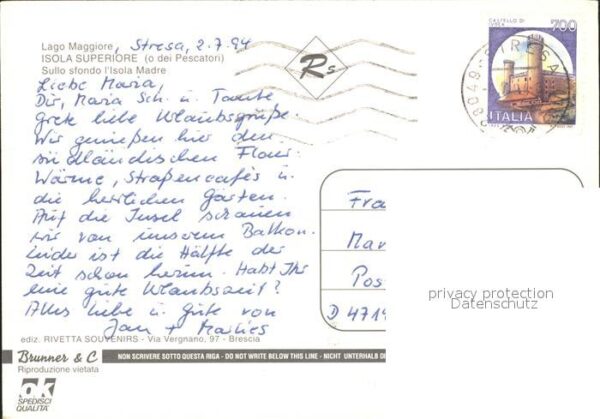 Lago Maggiore, Stresa, 2.7.94
ISOLA SUPERIORE (o dei Pescatori)
Sullo sfondo l'Isola Madre
Liebe Maria,
Dir, Maria Sch. u. Tante
liebe Urlaubsgrüße.
Wir genießen hier den
südländischen Flair.
Wärme, Straßencafés u.
die herrlichen Gärten.
Auf die Insel schauen
wir von unserem Balkon.
Leider ist die Hälfte der
Zeit schon herum. Habt Ihr
eine gute Urlaubszeit?
Alles liebe u. gute von
Jan + Marlies
ediz. RIVETTA SOUVENIRS - Via Vergnano, 97 - Brescia
Brunner & C
Riproduzione vietata
NON SCRIVERE SOTTO QUESTA RIGA - DO NOT WRITE BELOW THIS LINE - NICHT UNTERHALB DE
ok
SPEDISCI
QUALITÀ
Rs
CASTELLO DI
IVREA
700
ITALIA
STRESA
28049
Fra
Mar
Pos
D 4714
privacy protection
Datenschutz